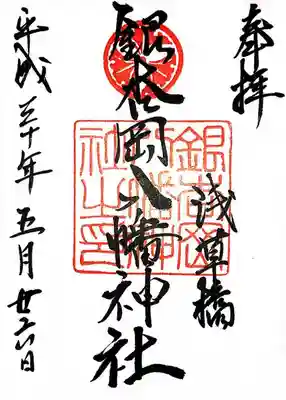 奉拝
浅草橋
銀杏岡八幡神社
銀杏岡八幡神社之印
平成三十年五月廿六日